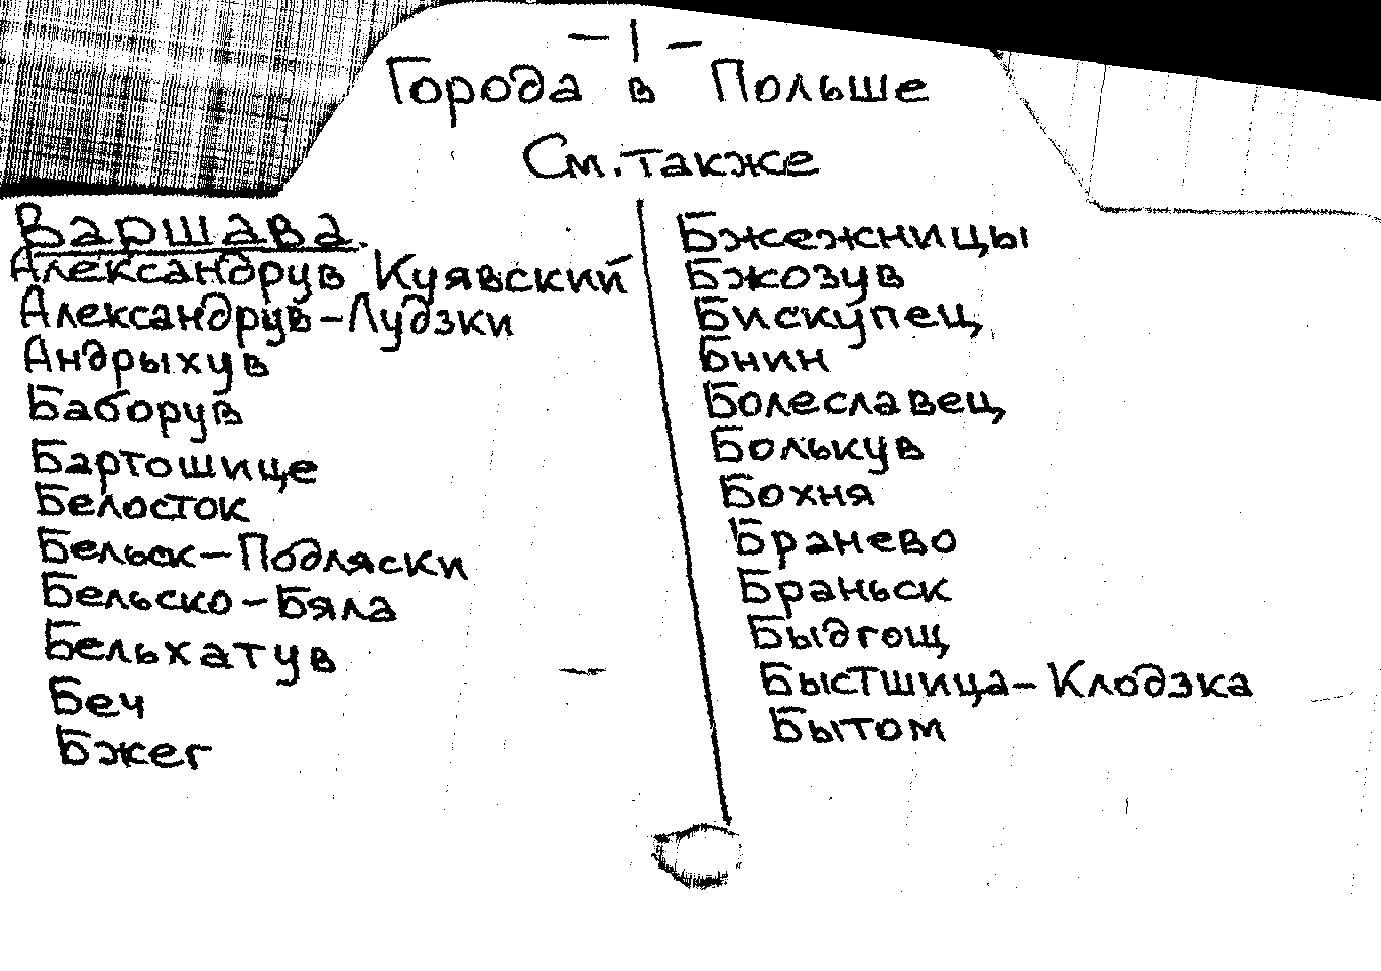 - I -
Города в Польше
См. также
Варшава.
Александрув Куявский
Александрув-Лудзки
Андрыхув
Баборув
Бартошице
Белосток
Бельск-Подляски
Бельско-Бяла
Бельхатув
Беч
Бжег
Бжежницы
Бжозув
Бискупец
Бнин
Болеславец
Болькув
Бохня
Бранево
Браньск
Быдгощ
Быстшица-Клодзка
Бытом